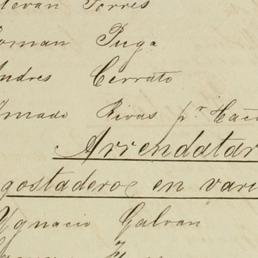 levan Torres
oman Puga
ndres Cerrato
mado Rivas pr Hac
Arrendatar
gostaderos en vari
Ygnacio Galvan